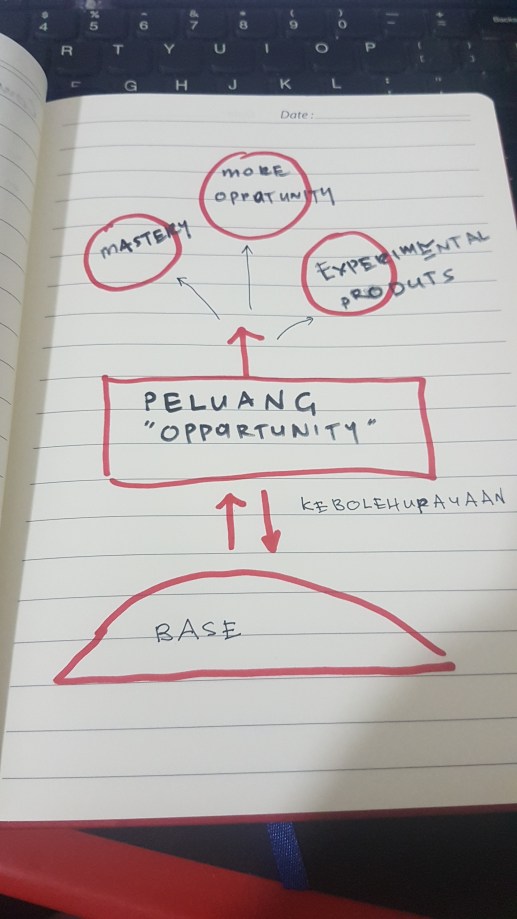 $ % ^ & * ( )
4 5 6 7 8 9 0
R T Y U I O P
G H J K L
Date:
MORE
OPRATUNITY
MASTERY
EXPERIMENTAL
PRODUTS
PELUANG
"OPPARTUNITY"
KEBOLEHUPAYAAN
BASE